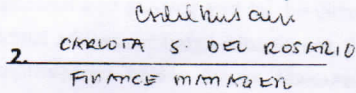 2. CARLOTA S. DEL ROSARIO
FINANCE MANAGER